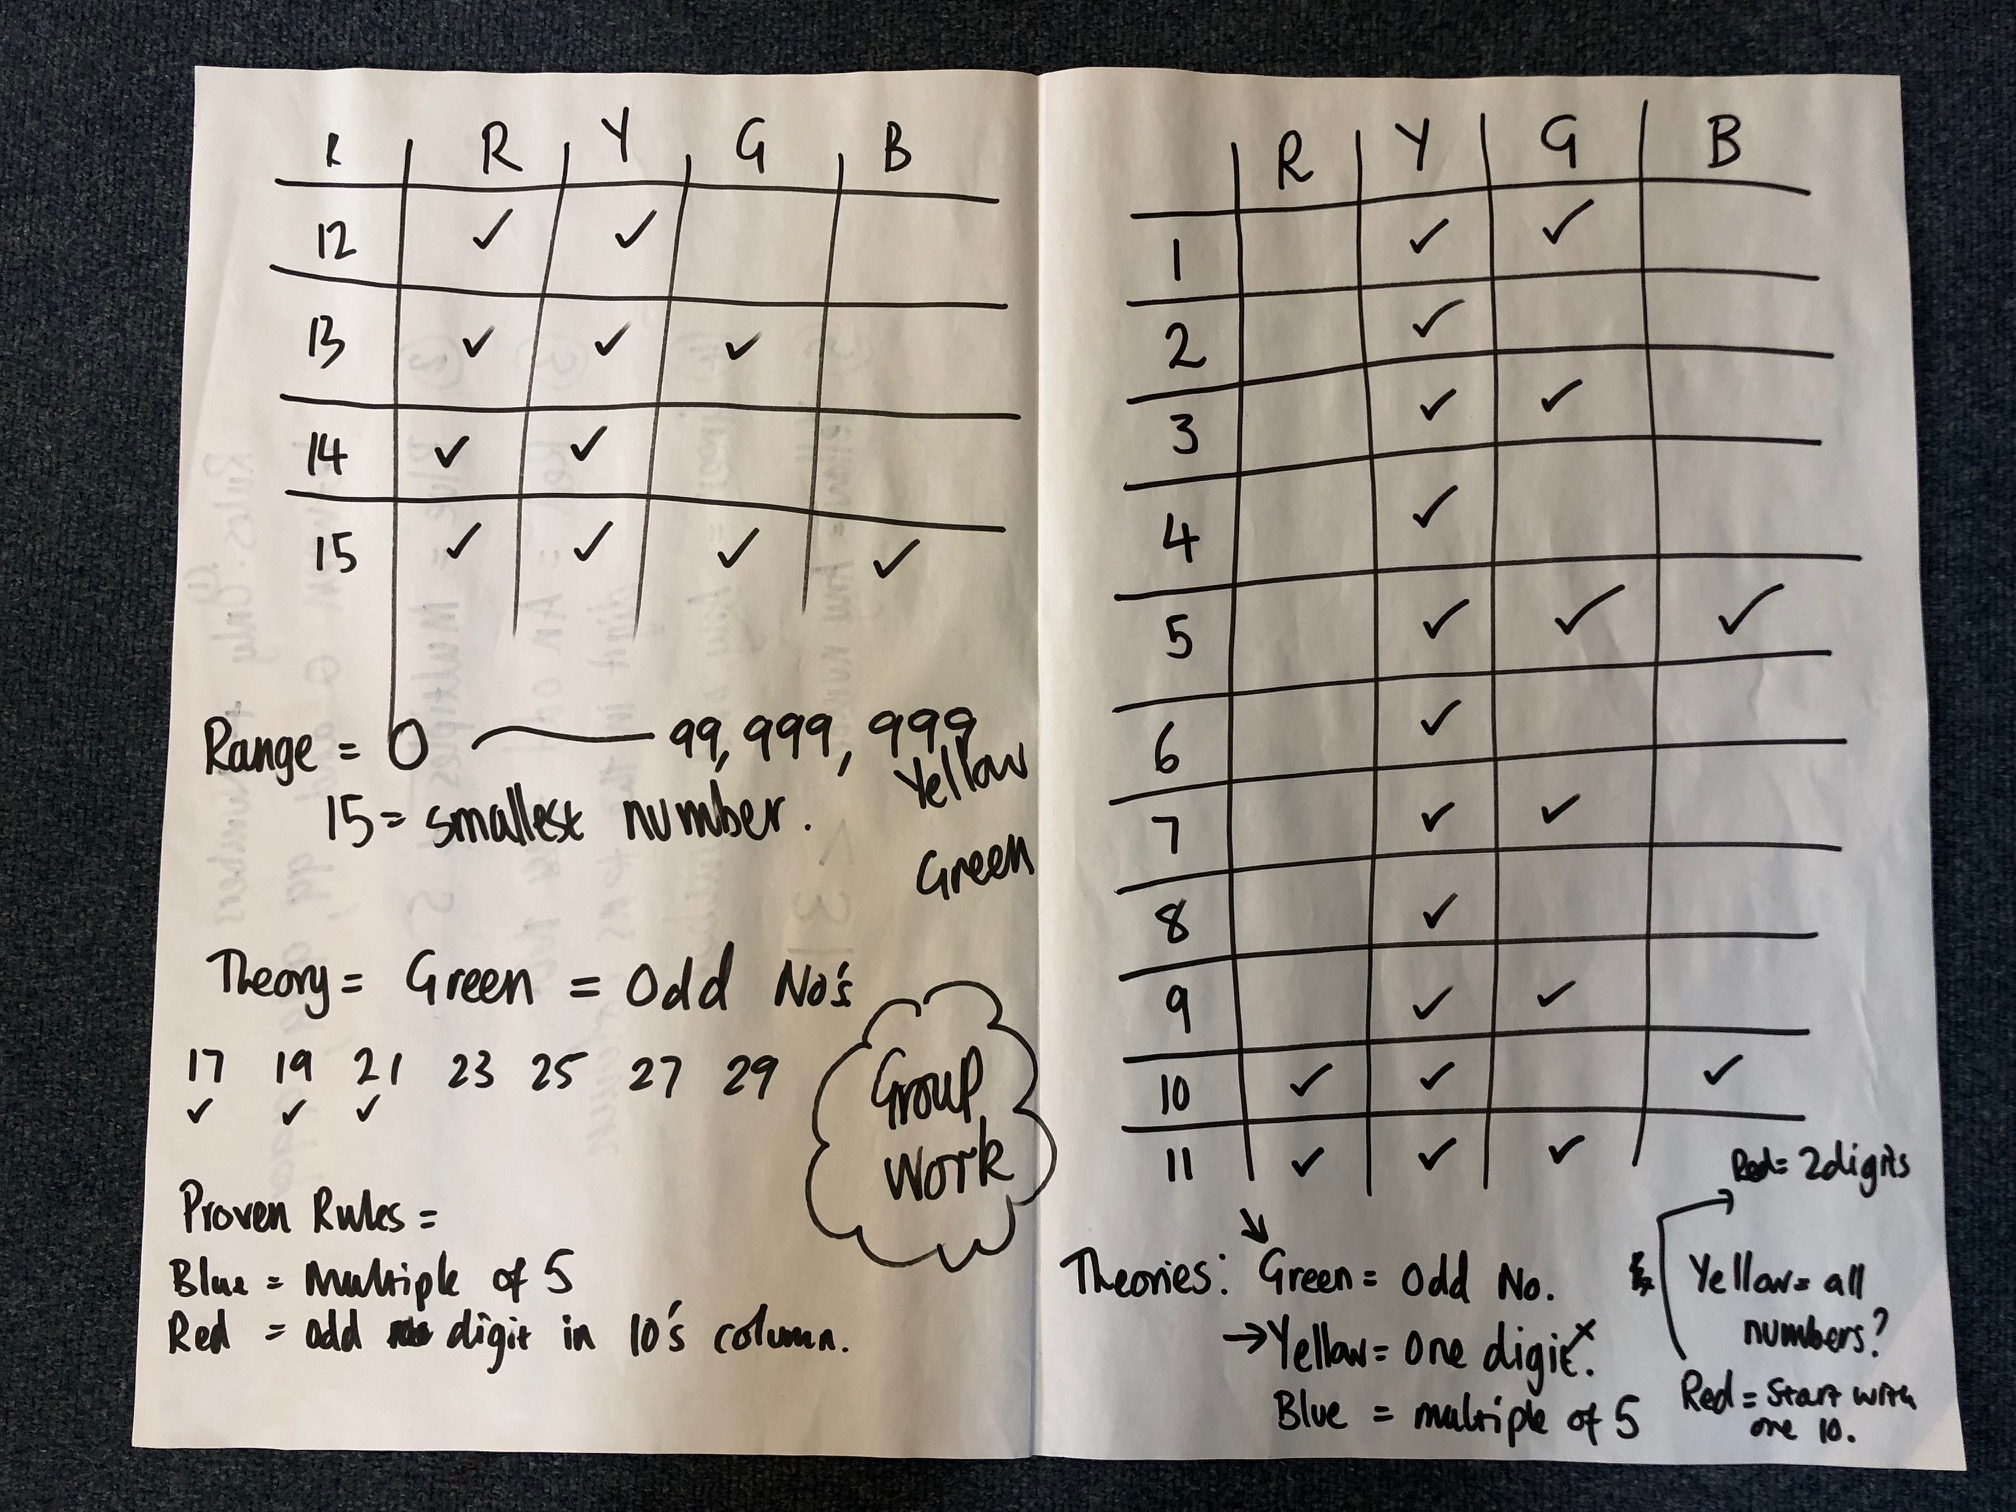 R Y G B
12 ✓ ✓
13 ✓ ✓ ✓
14 ✓ ✓
15 ✓ ✓ ✓ ✓
Range = 0 — 99,999,999
15 = smallest number.
Yellow
Green
Theory = Green = Odd No's
17 19 21 23 25 27 29
✓ ✓ ✓
Group
work
Proven Rules =
Blue = Multiple of 5
Red = odd digit in 10's column.
R Y G B
1 ✓ ✓
2 ✓
3 ✓ ✓
4 ✓
5 ✓ ✓ ✓
6 ✓
7 ✓ ✓
8 ✓
9 ✓ ✓
10 ✓ ✓ ✓
11 ✓ ✓ ✓
Red = 2digits
Theories: Green = Odd No.
→Yellow = One digit. x
Blue = multiple of 5
Yellow = all
numbers?
Red = Start with
one 10.